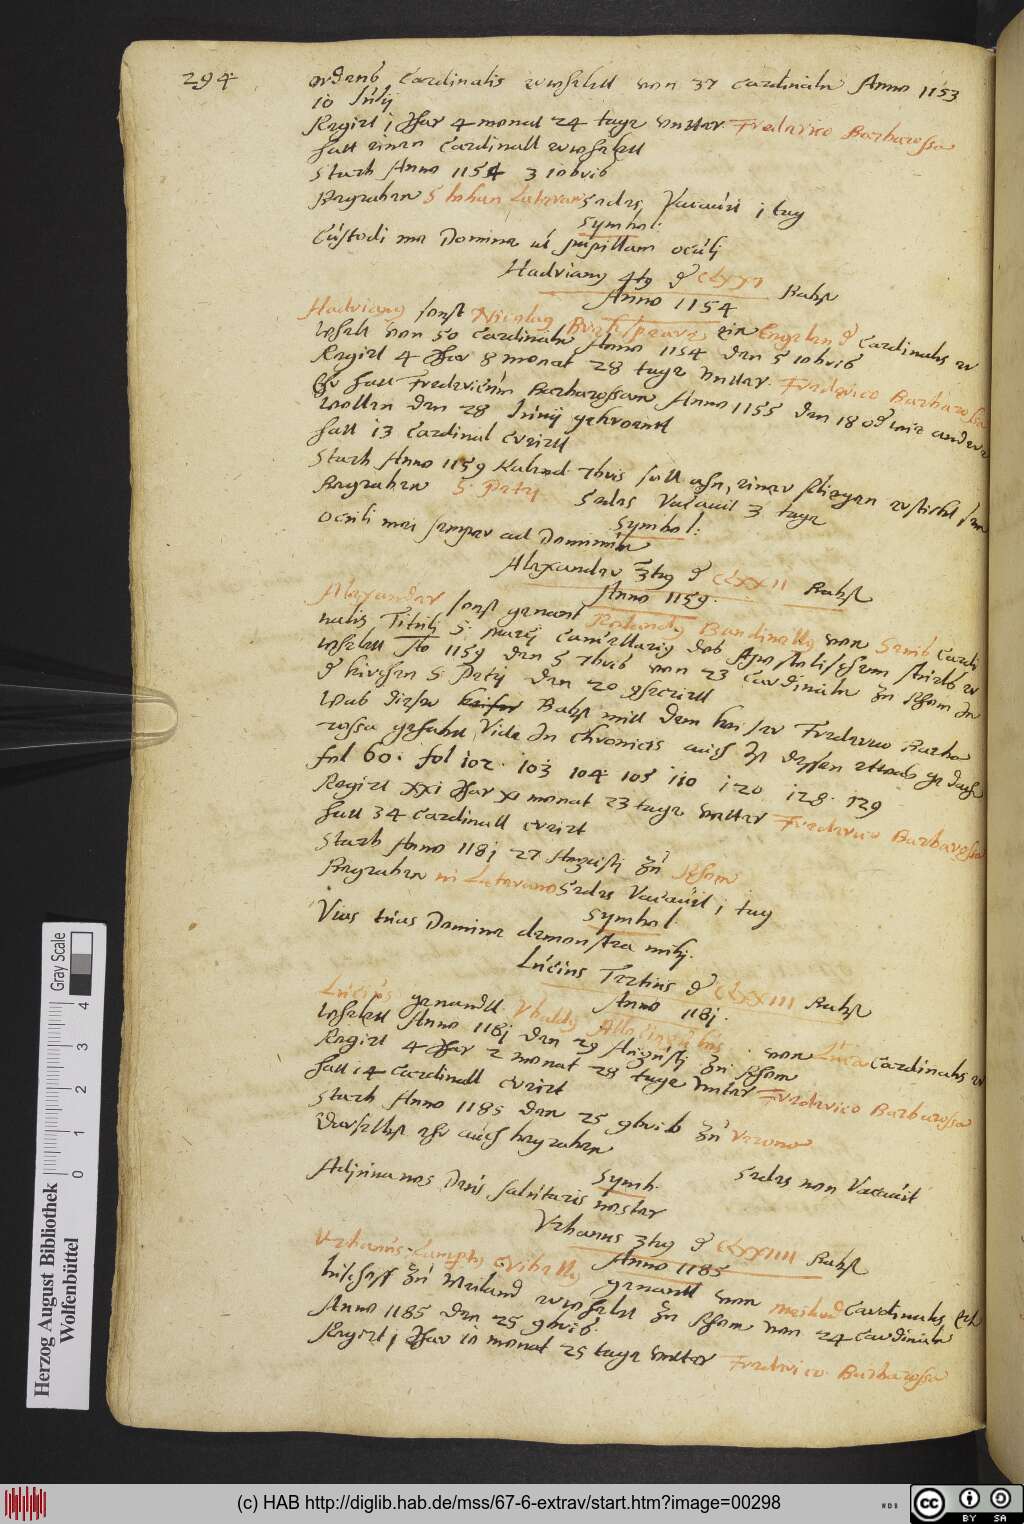 294
ordens Cardinalis erwehlett von 37 Cardinaln Anno 1153
10 Julij
Regirt j Jhar 4 monat 24 tage vntter Frederico Barbarossa
hatt einen Cardinall erwehlett
Starb Anno 1154 3 10bris
Begraben S Johan Lateran Sedes Vacauit j tag
Symbol:
Custodi me Domine ut pupillam oculj
Hadrianus 4tus d CLXXI Babst
Anno 1154
Hadrianus sonst Nicolaus ein Engelen d Cardinalis er
wehlt von 50 Cardinaln Anno 1154 den 5 10bris
Regirt 4 Jhar 8 monat 28 tage vntter Frederico Barbarossa
Ehr hatt Fredericum Barbarossam Anno 1155 den 18 od wie andere
wollen den 28 Junij gekroentt
hatt 13 Cardinal creirtt
Starb Anno 1159 Kalend 7bris soll ahn einer fliegen erstickt sein
Begraben S. Petri Sedes Vacauit 3 tage
Symbol:
Oculi mei semper ad Dominum
Alexander 3tus d CLXXII Babst
Anno 1159.
Alexander sonst genant Rolandus Bandinellus von Senis Cardi
nalis Tituli S: Marcj Cancellarius des Apostolischem stuels er
wehlett Ao 1159 den 5 7bris von 23 Cardinaln Zu Rhom In
d kirchen S Petrj den 20
Was dieser keiser Babst mitt dem keiser Frederico Barba
rossa gehabtt Vide In Chronicis auch
fol 60. fol 102. 103 104 105 110 120 128. 129
Regirt XXI Jhar XI monat 23 tage vntter Frederico Barbarossa
hatt 34 Cardinall creirt
Starb Anno 118j 27 Augustj Zu Rhom
Begraben in Laterano Sedes Vacauit j tag
Symbol.
Vias tuas Domine demonstra mihj.
Lucius Tertius d CLXXIII Babst
Anno 118j.
Lucius genandtt Vbaldus von Luca Cardinalis er
wehlett Anno 118j den 29 Augustj Zu Rhom
Regirt 4 Jhar 2 monat 28 tage vntter Frederico Barbarossa
hatt 14 Cardinall creirt
Starb Anno 1185 den 25 9bris Zu Verona
Daselbst ehr auch begraben
Symb. Sedes non Vacauit
Adjuua nos Deus salutaris noster
Vrbanus 3tus d CLXXIIII Babst
Anno 1185
Vrbanus Lamptus Cribellus genantt von Meiland Cardinalis, Ertz
bischoff Zu Meiland erwehlett Zu Rhom von 24 Cardinaln
Anno 1185 den 25 9bris.
Regirt j Jhar 10 monat 25 tage vntter Frederico Barbarossa
Herzog August Bibliothek
Wolfenbüttel
Gray Scale
0 1 2 3 4
(c) HAB http://diglib.hab.de/mss/67-6-extrav/start.htm?image=00298
WDB
cc BY SA